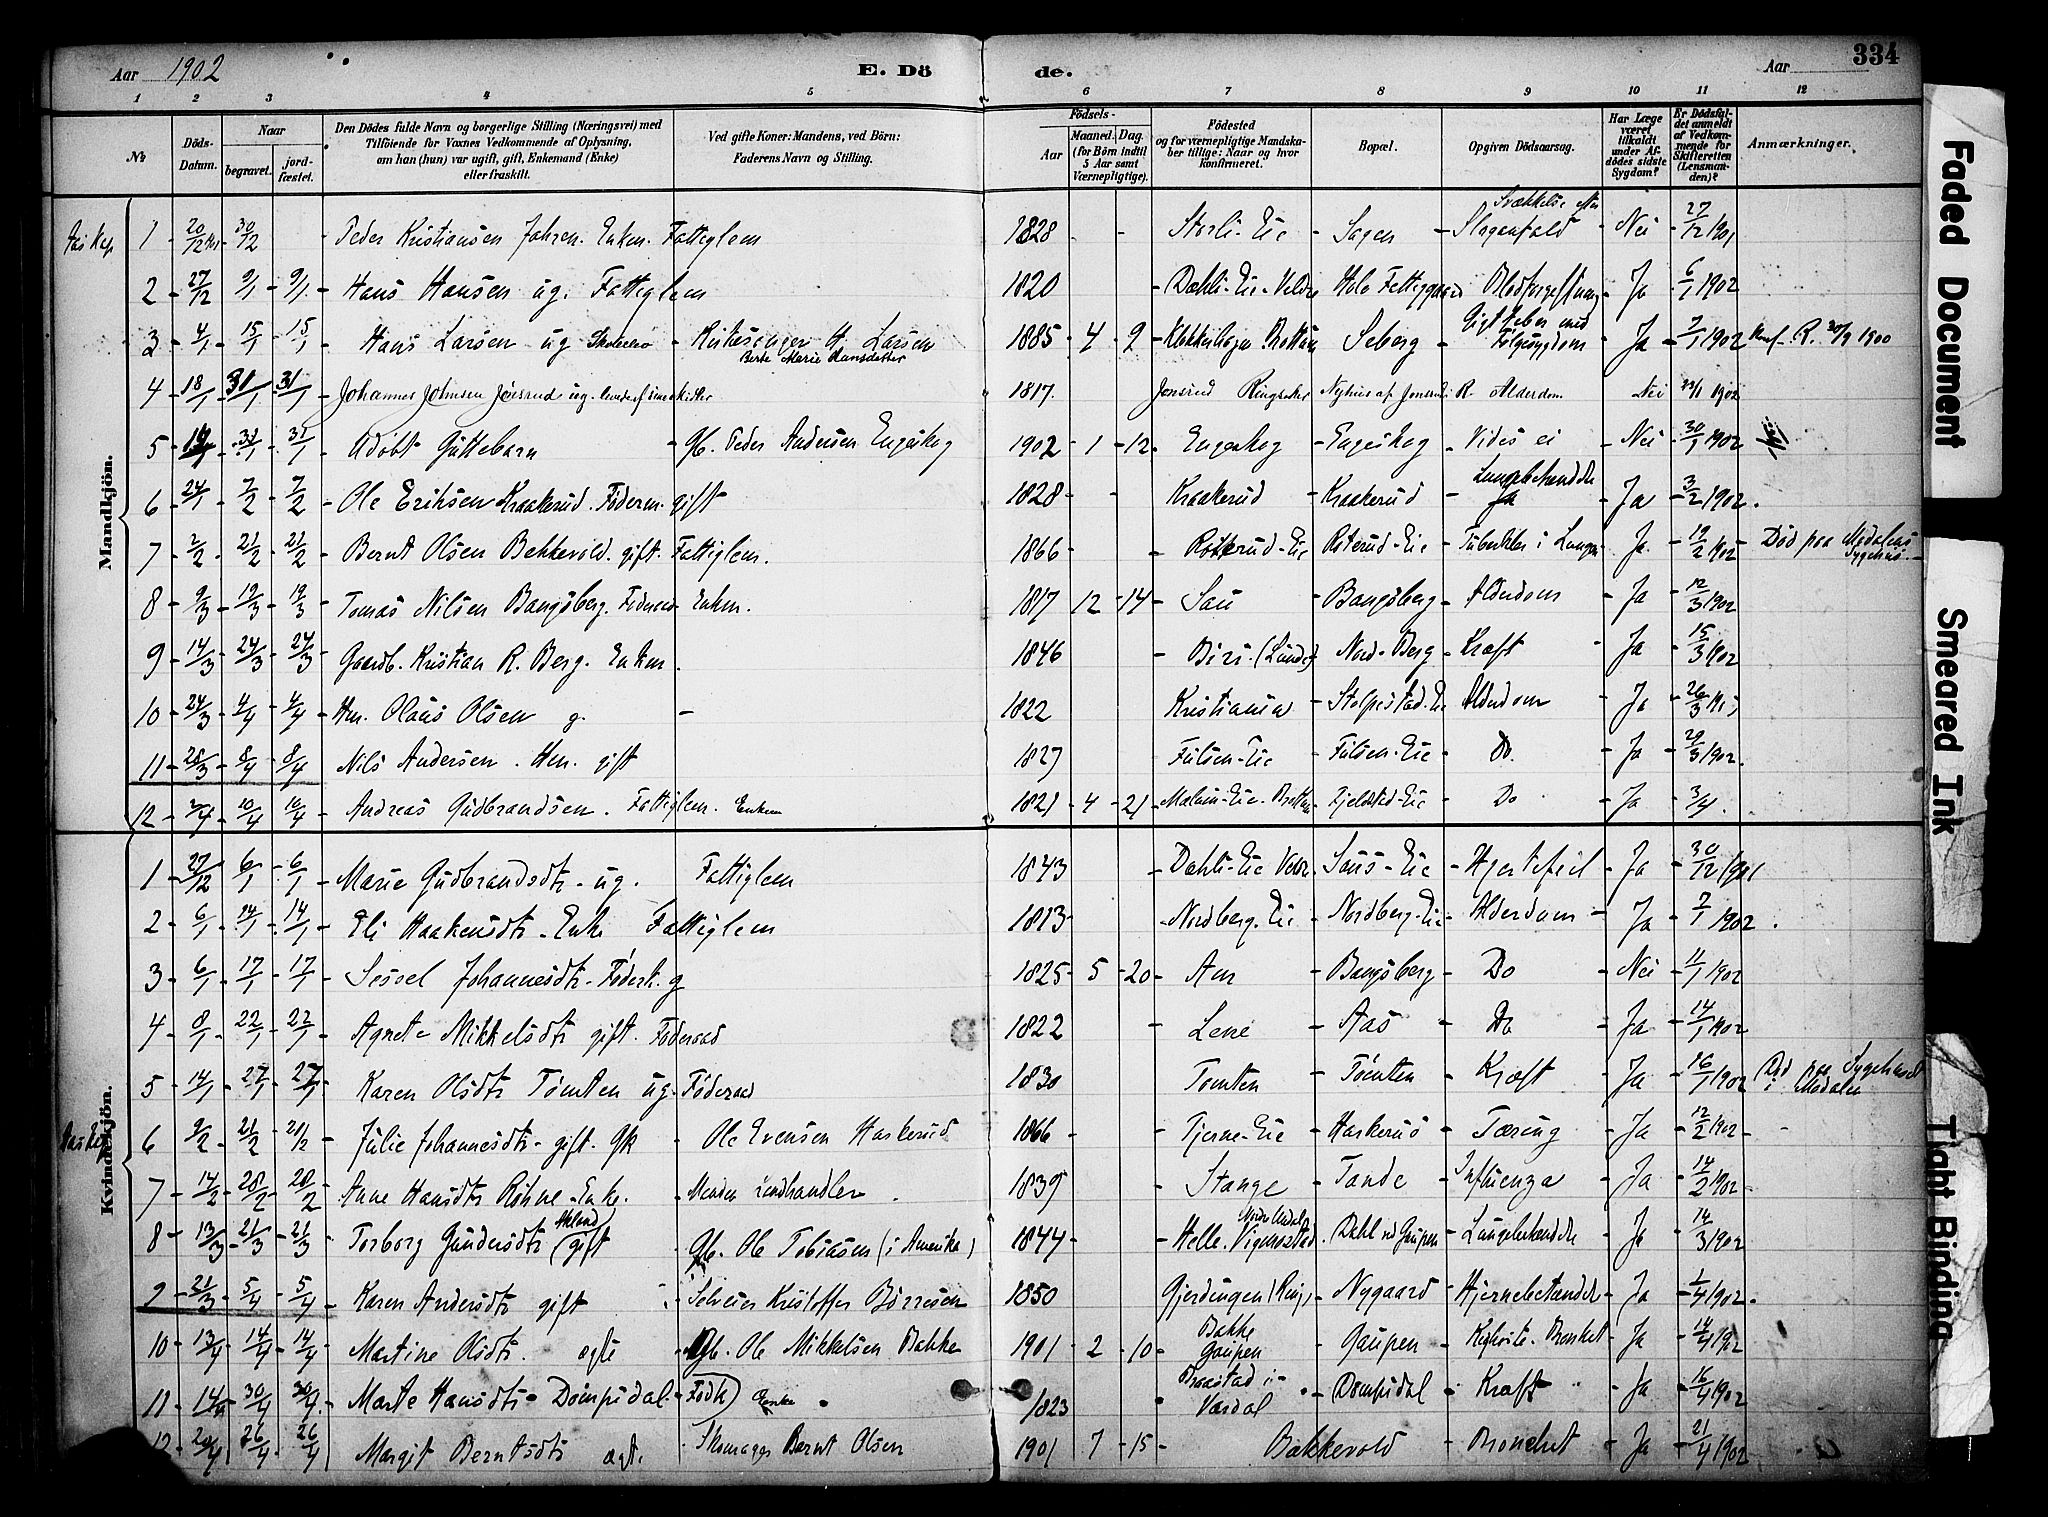 Aar 1902 E. Dö de. Aar 334
1 2 3 4 5 6 7 8 9 10 11 12
№ Döds-Datum. Naar begravet. jord-fæstet. Den Dödes fulde Navn og borgerlige Stilling (Næringsvei) med Tilföiende for Voxnes Vedkommende af Oplysning, om han (hun) var ugift, gift, Enkemand (Enke) eller fraskilt. Ved gifte Koner: Mandens, ved Börn: Faderens Navn og Stilling. Födsels- Aar Maaned. Dag. (for Börn indtil 5 Aar samt Værnepligtige). Födested og for værnepligtige Mandskaber tillige: Naar og hvor konfirmeret. Bopæl. Opgiven Dödsaarsag. Har Læge været tilkaldt under Afdödes sidste Sygdom? Er Dödsfaldet anmeldt af Vedkommende for Skifteretten (Lensmanden)? Anmærkninger.
Mandkjön.
1 20/12 30/12 Peder Kristiansen Enkm. Fattiglem 1828 Storli-Eie Sagen Svækkelse efter Slaganfald Nei 27/12 1901
2 27/12 9/1 9/1 Hans Hansen ug. Fattiglem 1820 Dæhli-Eie Veldre Fattiggaard Blodforgiftning Ja 6/1 1902
3 4/1 15/1 15/1 Hans Larsen ug Skoleelev Kirkesanger H. Larsen Berte Marie Hansdatter 1885 4 9 Klokkerhagen Brøttum Seberg Gigtfeber med Følgesygdom Ja 7/1 1902 Konf. R. 30/9 1900
4 18/1 31/1 31/1 Johannes Johnsen Jønsrud ug. 1817 Jonsrud Ringsaker Nyhus af Jonsrud R Alderdom Nei 23/1 1902
5 31/1 31/1 Udøbt Guttebarn Gb. Peder Andersen Engeskog 1902 1 12 Engeskog Engeskog Vides ei Nei 30/1 1902
6 24/1 7/2 7/2 Ole Eriksen Kraakerud. Føderm. gift 1828 Kraakerud Kraakerud Lungebetændelse Ja 3/2 1902.
7 2/2 21/2 21/2 Bernt Olsen Bekkevold. gift. Fattiglem. 1866 Roterud-Eie Roterud-Eie Tuberkler i Lungen Ja 19/2 1902 Død paa Modalens Sygehus
8 9/3 19/3 19/3 Tomas Nilsen Bangsberg. Føderaad Enkm. 1817 12 14 Sau Bangsberg Alderdom Ja 12/3 1902
9 14/3 24/3 24/3 Gaardb. Kristian R. Berg. Enkm. 1846 Biri (Lunde) Nord-Berg Kræft Ja 15/3 1902
10 24/3 4/4 4/4 Hm. Olaus Olsen g. 1822 Kristiania Stolpestad-Eie Alderdom Ja 26/3
11 28/3 8/4 8/4 Nils Andersen. Hm. gift 1827 Fulsen-Eie Fulsen-Eie Do. Ja 29/3 1902.
12 2/4 10/4 10/4 Andreas Gudbrandsen. Fattiglem. Enkem 1821 4 21 Fjeldstad-Eie Do Ja 3/4
Kvindekjön.
1 27/12 6/1 6/1 Marie Gudbrandsdtr. ug. Fattiglem 1843 Dæhli-Eie Veldre Saus-Eie Hjertefeil Ja 30/12 1901
2 6/1 14/1 14/1 Eli Haakensdtr. Enke Fattiglem 1813 Nordberg-Eie Nordberg-Eie Alderdom Ja 7/1 1902.
3 6/1 17/1 17/1 Sessel Johannesdtr. Føderk. g 1825 5 20 Aur Bangsberg Do Nei 11/1 1902
4 8/1 22/1 22/1 Agnete Mikkelsdtr gift. Føderaad 1822 Lene Aas Do Ja 14/1 1902
5 14/1 27/1 27/1 Karen Olsdtr Tømten ug. Føderaad 1830 Tømten Tømten Kræft Ja 16/1 1902 Død paa Sygehuset i Modalen
6 9/2 21/2 21/2 Julie Johannesdtr. gift. Gk Ole Evensen Haskerud 1866 Tjerne-Eie Haskerud Tæring Ja 12/2 1902
7 14/2 28/2 28/2 Anne Hansdtr Røhne. Enke. Manden Landhandler 1839 Stange Tande Influenza Ja 14/2 1902
8 13/3 21/3 21/3 Torborg Gundersdtr gift Gb. Ole Tobiasen (i Amerika) 1844 Helle. Vigmostad Dahl ved Gaupen Lungebetændelse Ja 14/3 1902
9 21/3 5/4 5/4 Karen Andersdtr gift Selveier Kristoffer Børresen 1850 Gjerdingen (Ring.) Nygaard Hjernebetændelse Ja 1/4 1902.
10 13/4 14/4 14/4 Martine Olsdtr. ægte Gb. Ole Mikkelsen Bakke 1901 2 10 Bakke Gaupen Gaupen Kighoste. Bronket Ja 14/4 1902
11 14/4 30/4 30/4 Marte Hansdtr. Dompidal. Fødk Enke 1823 Braastad i Vardal Dompidal Kræft Ja 16/4 1902
12 20/4 26/4 26/4 Margit Berntsdtr ægte. Skomager Bernt Olsen 1901 7 15 Bakkevold Bronchit Ja 21/4 1902
Faded Document
Smeared Ink
Tight Binding